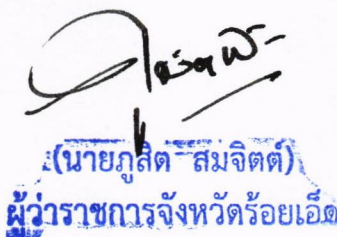 (นายภูสิต สมจิตต์)
ผู้ว่าราชการจังหวัดร้อยเอ็ด